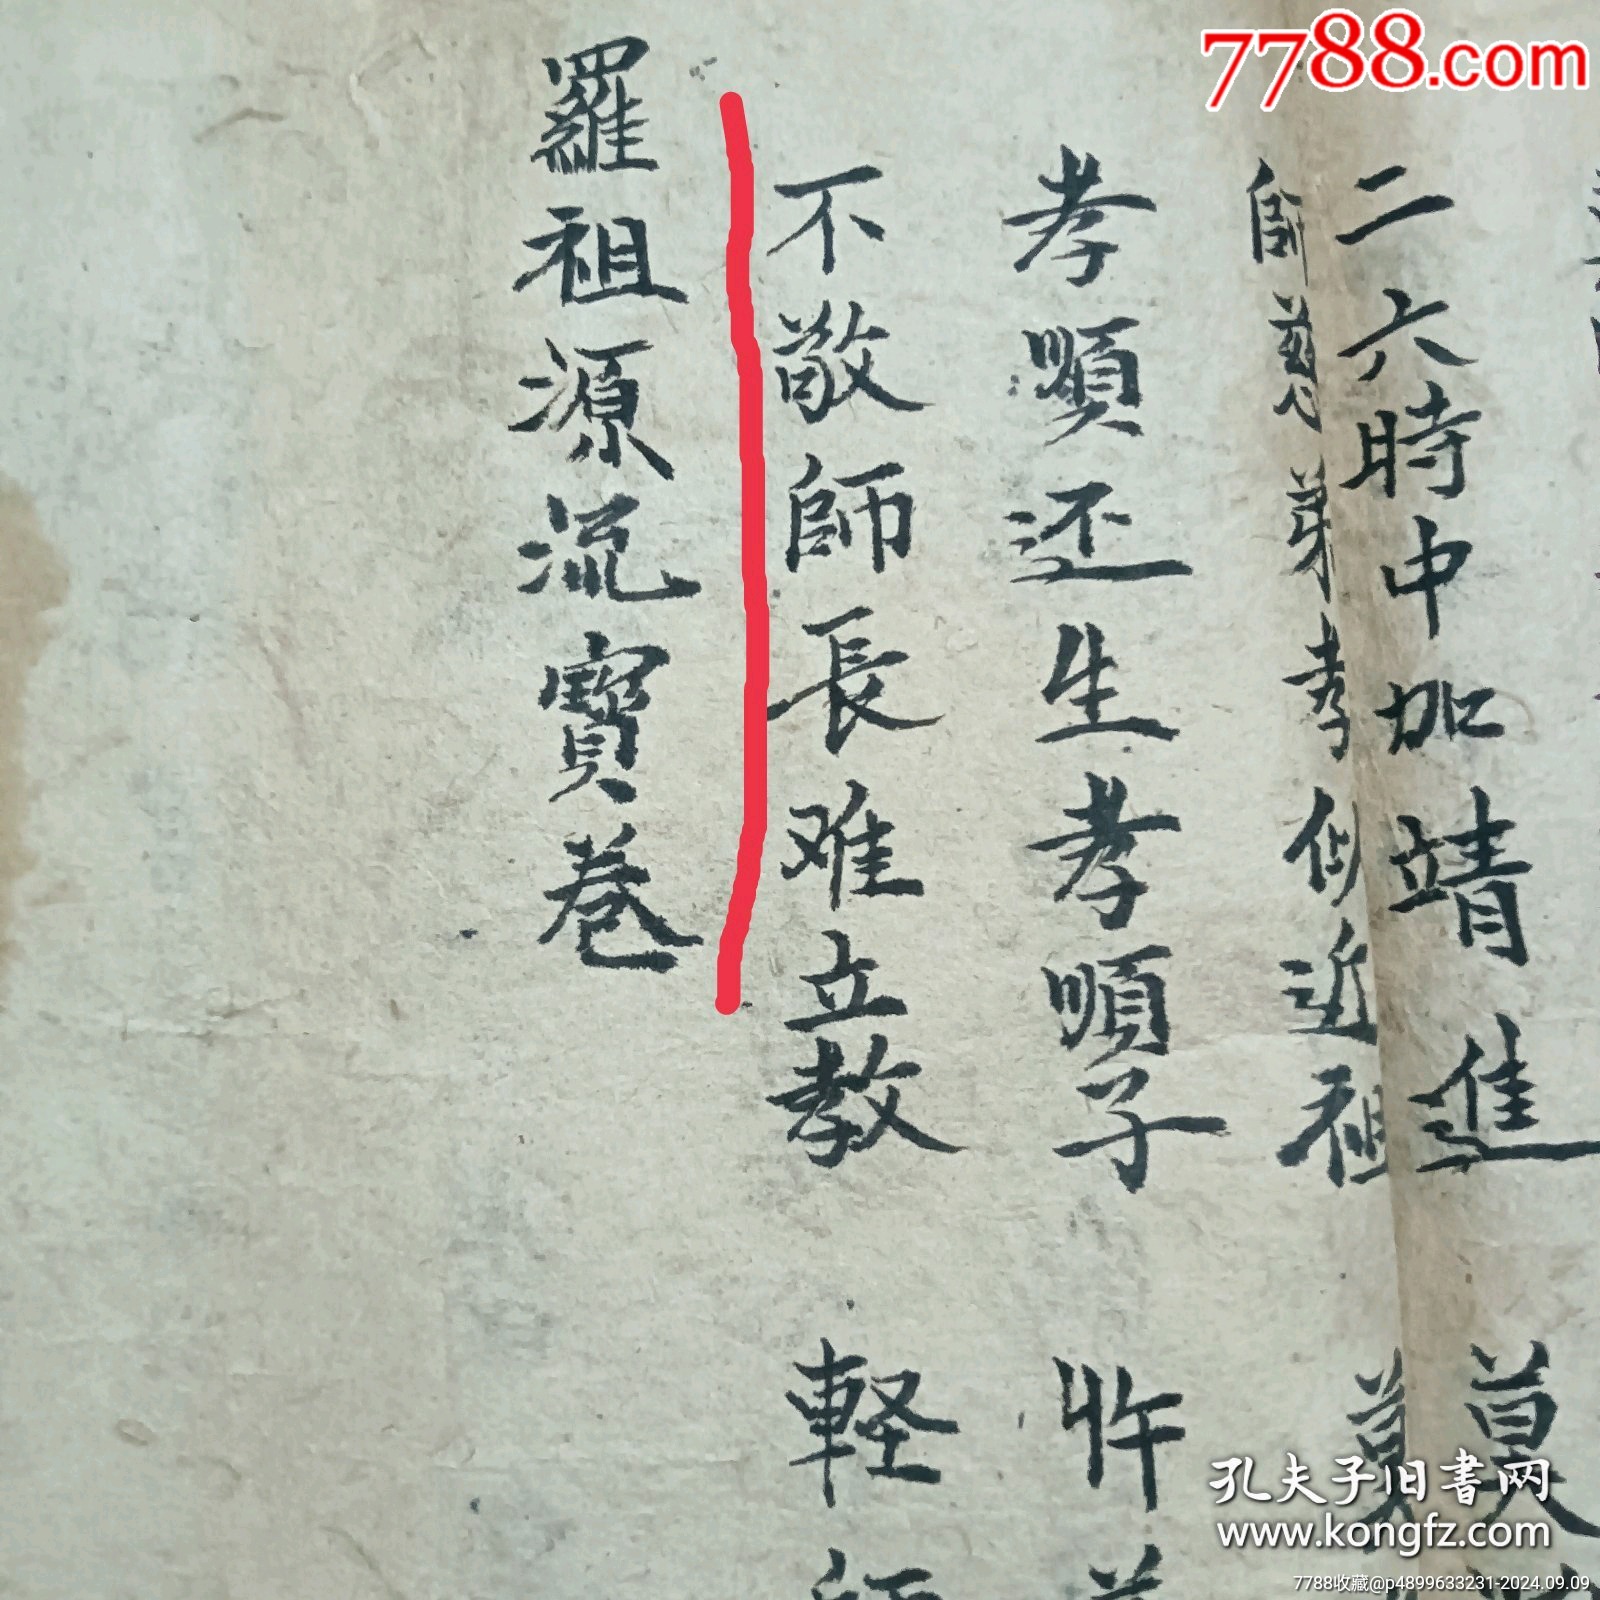 7788.com
二六時中加靖進 莫
師慈弟孝似近祖 莫
孝順还生孝順子
不敬師長难立教 軽師
羅祖源流寶卷
孔夫子旧書网
www.kongfz.com
7788收藏@p4899633231-2024.09.09